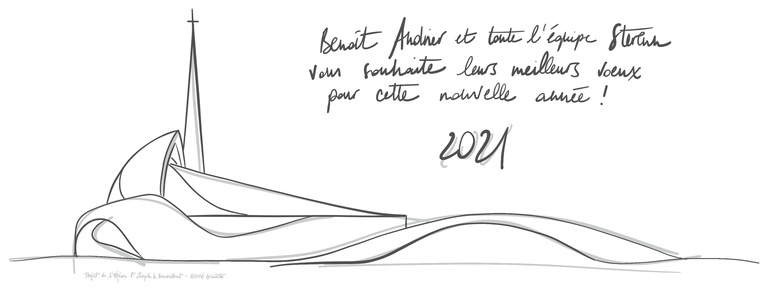 Benoît Andrier et toute l'équipe Sterenn
vous souhaite leurs meilleurs voeux
pour cette nouvelle année !
2021
Projet de l'Église St Joseph le Bienveillant -